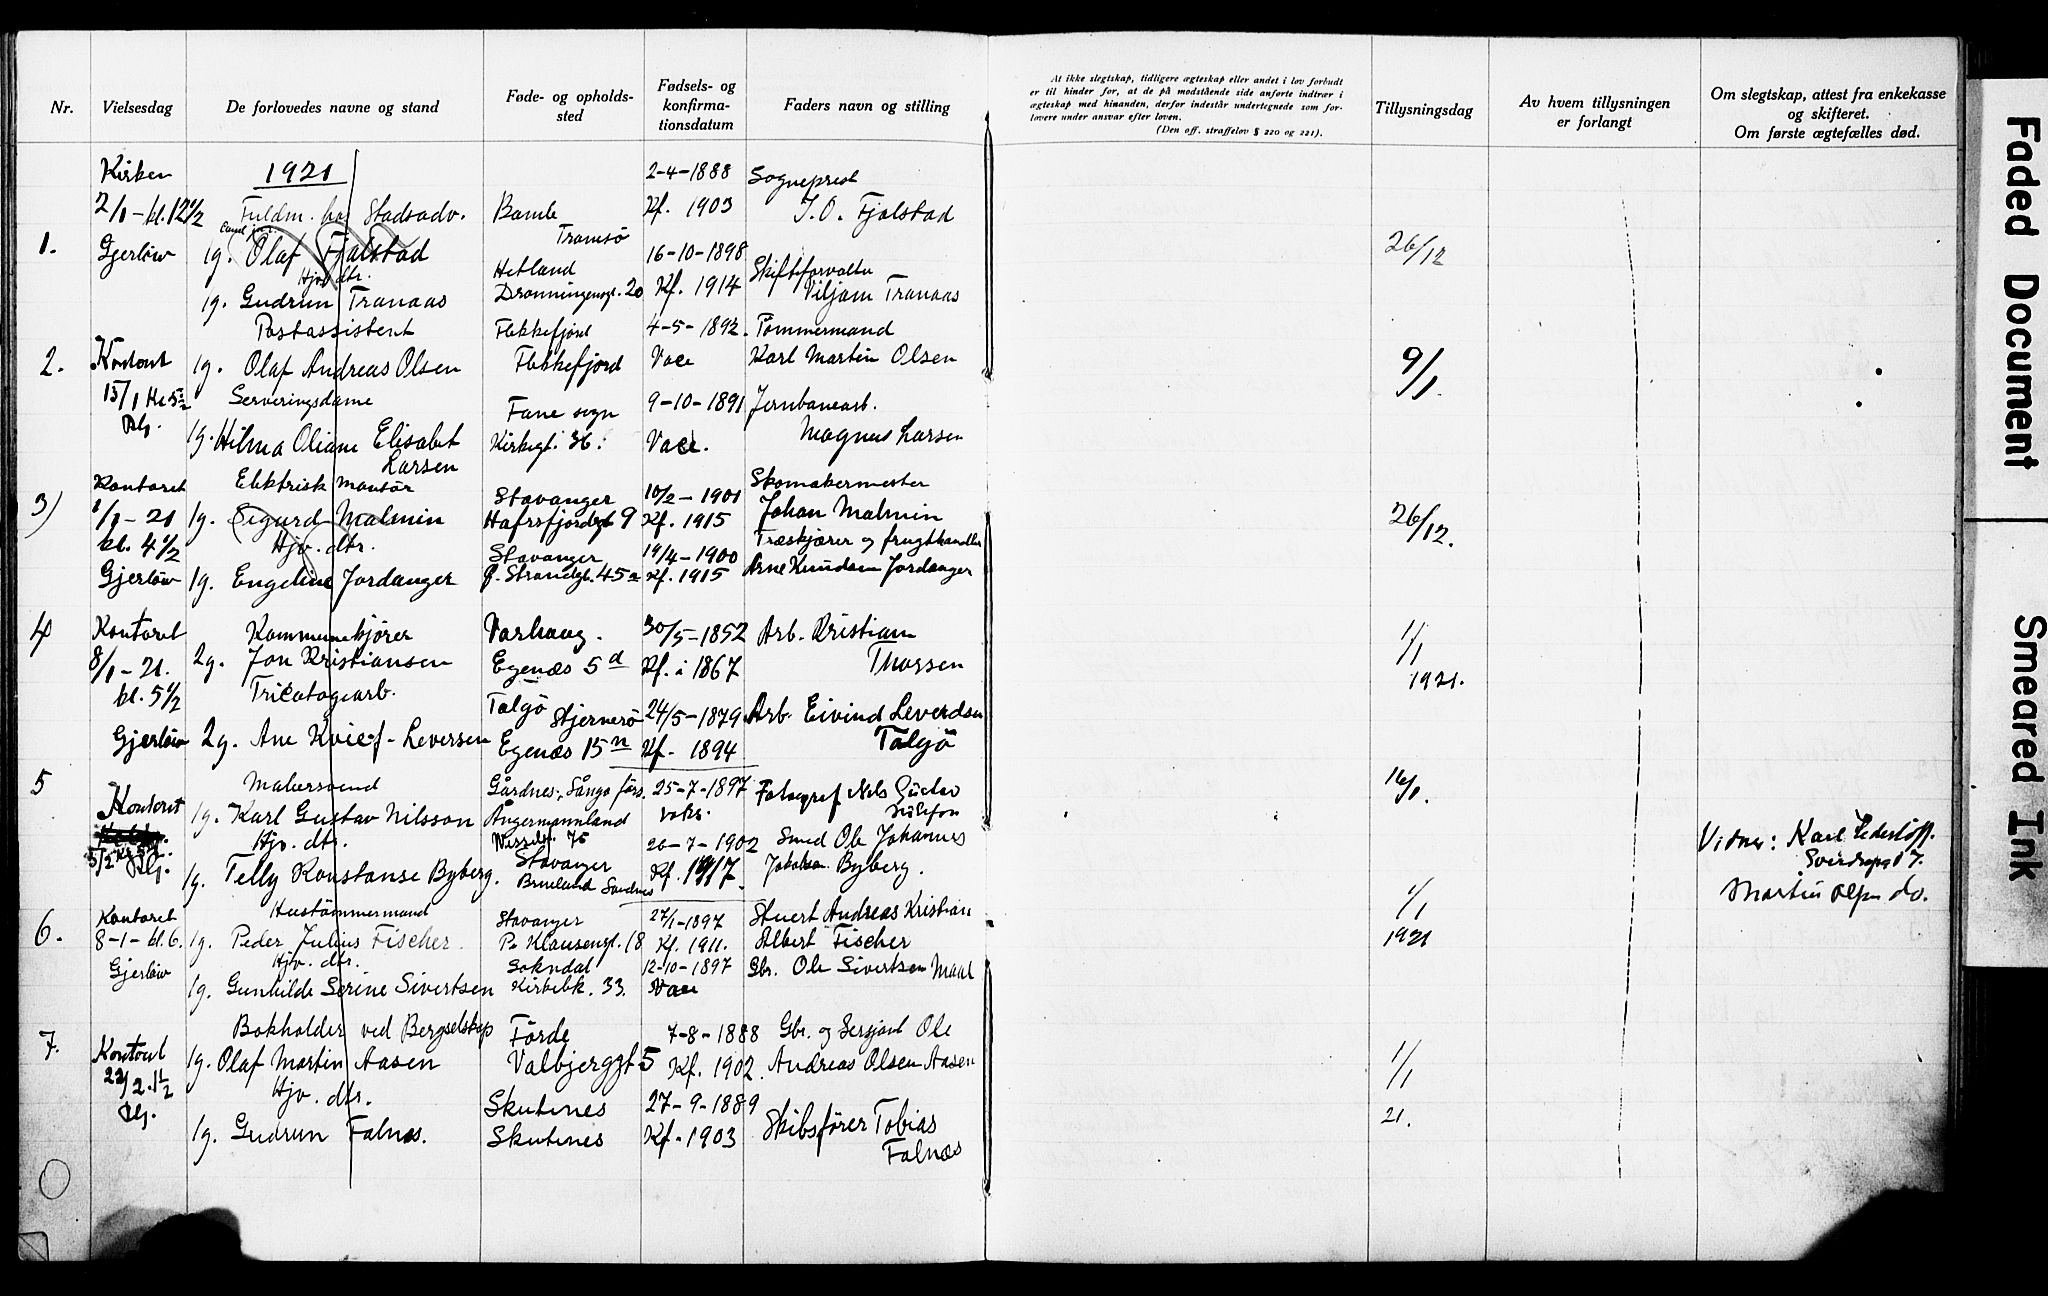 Nr.
Vielsesdag
De forlovedes navne og stand
Føde- og opholds-
sted
Fødsels- og
konfirma-
tionsdatum
Faders navn og stilling
At ikke slegtskap, tidligere ægteskap eller andet i lov forbudt
er til hinder for, at de på modstående side anførte indtrær i
ægteskap med hinanden, derfor indestår undertegnede som for-
lovere under ansvar efter loven.
(Den off. straffelov § 220 og 221).
Tillysningsdag
Av hvem tillysningen
er forlangt
Om slegtskap, attest fra enkekasse
og skifteret.
Om første ægtefælles død.
Faded Document
Smeared Ink
1921
1.
Kirken
2/1 - kl. 12 1/2
Gjerløw
Fuldm. hos Stadsadv.
Cand. jur.
1g. Olaf Fjalstad
Hjv. dtr.
1g. Gudrun Tranaas
Bamle
Tromsö
Hetland
Dronningensgt. 20
2-4-1888
Kf. 1903
16-10-1898
Kf. 1914
Sogneprest
J. O. Fjalstad
Skifteforvalter
Viljam Tranaas
26/12
2.
Kontoret
15/1 Kl 5 1/2
Postassistent
1g. Olaf Andreas Olsen
Serveringsdame
1g. Hilma Oliane Elisabet
Larsen
Flekkefjord
Flekkefjord
Fane sogn
Kirkegt. 36.
4-5-1892.
Vace
9-10-1891
Vace.
Tømmermand
Karl Martin Olsen
Jernbanearb.
Magnus Larsen
9/1.
3)
Kontoret
8/1 - 21
kl. 4 1/2
Gjerløw
Elektrisk montör
1g. Sigurd Malmin
Hjv. dtr.
1g. Engeline Jordanger
Stavanger
Hafrsfjordgt 9
Stavanger
Ø. Strandgt. 45a
10/2 - 1901
Kf. 1915
19/4 - 1900
Kf. 1915
Skomakermester
Johan Malmin
Træskjærer og frugthandler
Arne Knudsen Jordanger
26/12.
4
Kontoret
8/1 - 21.
kl. 5 1/2
Gjerløw
Kommunekjører
2g. Jon Kristiansen
Tricotagearb.
2g. Ane Kvief - Leversen
Varhaug.
Egenæs 5 d
Talgö Stjernerö
Egenæs 15 n
30/5 - 1852
Kf. i 1867
24/5 - 1879
Kf. 1894
Arb. Kristian
Thorsen
Arb. Eivind Leverdsen
Talgö
1/1
1921.
5
Kontoret
5/2
Malersvend
1g. Karl Gustav Nilsson
Hjv. dtr.
1g. Telly Konstanse Byberg.
Gårdnes, Sånga förs.
Ångermannland
Stavanger
Brueland Sandnes
25-7-1897
voks.
20-7-1902
Kf. 1917.
Fotograf Nels Gustav
Smed Ole Johannes
Jakobsen Byberg.
16/1.
Vidner: Karl
17.
Martin do.
6.
Kontoret
8-1- kl. 6.
Gjerløw
Hustömmermand
1g. Peder Julius Fischer.
Hjv. dtr.
1g. Gunhilde Serine Sivertsen
Stavanger
P. Klausensgt. 18
Sokndal
Kirkebk. 33.
27/1-1897
Kf. 1911.
12-10-1897
Vace
Stuert Andreas Kristian
Albert Fischer
Gbr. Ole Sivertsen
1/1
1921
7.
Kontoret
22/2. 1 1/2
Bokholder ved Bergselskap
1g. Olaf Martin Aasen
Hjv. dtr.
1g. Gudrun Falnes.
Förde
Valbjerggt 5
Skutenes
Skutenes
7-8-1888
Kf. 1902.
27-9-1889
Kf. 1903
Gbr. og Sersjant Ole
Andreas Olsen Aasen
Skibsfører Tobias
Falnæs
1/1
21.